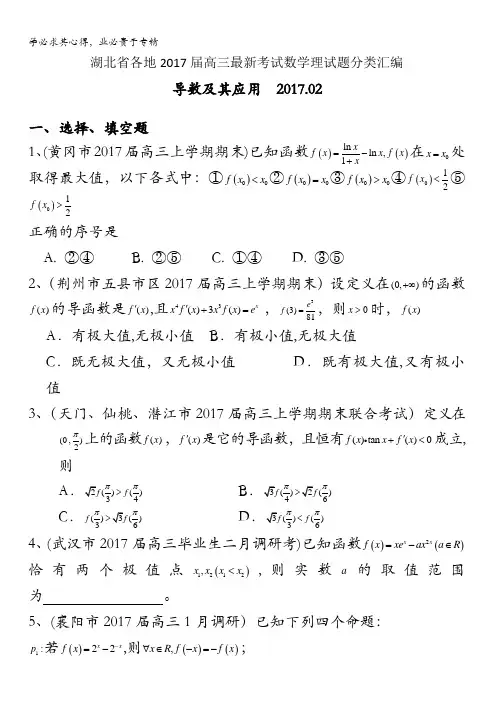 学必求其心得,业必贵于专精
湖北省各地2017届高三最新考试数学理试题分类汇编
导数及其应用 2017.02
一、选择、填空题
1、(黄冈市2017届高三上学期期末)已知函数 f(x)=\frac{\ln x}{1+x}-\ln x, f(x) 在 x=x_0 处
取得最大值，以下各式中：① f(x_0)<x_0 ② f(x_0)=x_0 ③ f(x_0)>x_0 ④ f(x_0)<\frac{1}{2} ⑤
f(x_0)>\frac{1}{2}
正确的序号是
A. ②④ B. ②⑤ C. ①④ D. ③⑤
2、（荆州市五县市区2017届高三上学期期末）设定义在(0,+∞)的函数
f(x)的导函数是 f′(x),且 x^4f′(x)+3x^3f(x)=e^x ，f(3)=\frac{e^3}{81}，则 x>0 时，f(x)
A．有极大值,无极小值 B．有极小值,无极大值
C．既无极大值，又无极小值 D．既有极大值,又有极小
值
3、（天门、仙桃、潜江市2017届高三上学期期末联合考试）定义在
(0,\frac{π}{2})上的函数 f(x)，f′(x)是它的导函数，且恒有 f(x)•tan x+f′(x)<0 成立,
则
A．\sqrt{2}f(\frac{π}{3})>f(\frac{π}{4}) B．\sqrt{3}f(\frac{π}{4})>\sqrt{2}f(\frac{π}{6})
C．f(\frac{π}{3})>\sqrt{3}f(\frac{π}{6}) D．\sqrt{3}f(\frac{π}{3})<f(\frac{π}{6})
4、(武汉市2017届高三毕业生二月调研考)已知函数 f(x)=xe^x-ax^{2x}(a∈R)
恰有两个极值点 x_1,x_2(x_1<x_2)，则实数 a 的取值范围
为 。
5、（襄阳市2017届高三1月调研）已知下列四个命题：
p_1:若 f(x)=2^x-2^{-x},则 ∀x∈R,f(-x)=-f(x)；